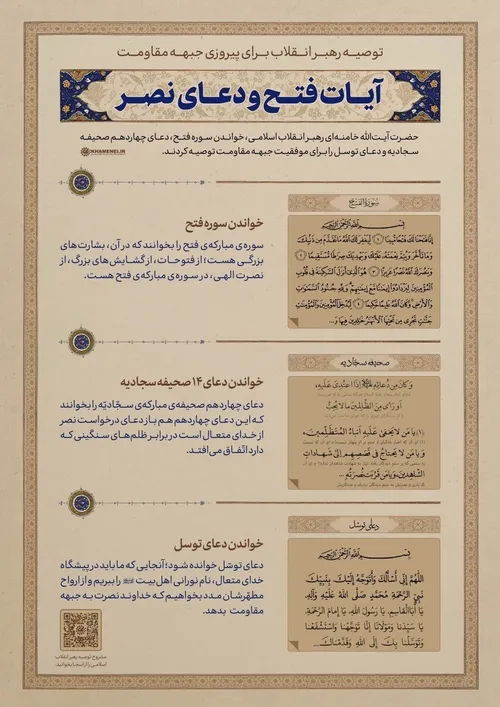 توصیه رهبر انقلاب برای پیروزی جبهه مقاومت
آیات فتح و دعای نصر
حضرت آیت‌الله خامنه‌ای رهبر انقلاب اسلامی، خواندن سوره فتح، دعای چهاردهم صحیفه
سجادیه و دعای توسل را برای موفقیت جبهه مقاومت توصیه کردند.
KHAMENEI.IR
سورة الفتح
خواندن سوره فتح
سوره‌ی مبارکه‌ی فتح را بخوانند که در آن، بشارت‌های
بزرگی هست؛ از فتوحات، از گشایش‌های بزرگ، از
نصرت الهی، در سوره‌ی مبارکه‌ی فتح هست.
بسم الله الرحمن الرحیم
إنا فتحنا لك فتحا مبينا ۱ ليغفر لك الله ما تقدم من ذنبك
وما تأخر ويتم نعمته عليك ويهديك صراطا مستقيما ۲
وينصرك الله نصرا عزيزا ۳ هو الذي أنزل السكينة في قلوب
المؤمنين ليزدادوا إيمانا مع إيمانهم ولله جنود السماوات
والأرض وكان الله عليما حكيما ۴ ليدخل المؤمنين والمؤمنات
جنات تجري من تحتها الأنهار خالدين فيها و...
صحیفه سجادیه
خواندن دعای ۱۴ صحیفه سجادیه
دعای چهاردهم صحیفه‌ی مبارکه‌ی سجّادیّه را بخوانند
که این دعای چهاردهم هم باز دعای درخواست نصر
از خدای متعال است در برابر ظلم‌های سنگینی که
دارد اتّفاق می‌افتد.
وَ كانَ مِن دُعائِهِ إِذَا اعتُدِيَ عَلَيهِ،
أو رَأى مِنَ الظّالِمينَ ما لا يُحِبُّ
(۱) يا مَن لا يَخفى عَلَيهِ أنباءُ المُتَظَلِّمينَ،
وَ يا مَن لا يَحتاجُ في قَصَصِهِم إلى شَهاداتِ
الشّاهِدينَ، وَ يا مَن قَرُبَت نُصرَتُهُ...
دعای توسل
خواندن دعای توسل
دعای توسّل خوانده شود؛ آنجایی که ما باید در پیشگاه
خدای متعال، نام نورانی اهل بیت را ببریم و از ارواح
مطهّرشان مدد بخواهیم که خداوند نصرت به جبهه
مقاومت بدهد.
بسم الله الرحمن الرحیم
اللَّهُمَّ إِنِّي أَسْأَلُكَ وَأَتَوَجَّهُ إِلَيْكَ بِنَبِيِّكَ
نَبِيِّ الرَّحْمَةِ مُحَمَّدٍ صَلَّى اللهُ عَلَيْهِ وَآلِهِ
يَا أَبَاالْقَاسِمِ، يَا رَسُولَ اللهِ، يَا إِمَامَ الرَّحْمَةِ
يَا سَيِّدَنَا وَمَوْلَانَا إِنَّا تَوَجَّهْنَا وَاسْتَشْفَعْنَا
وَتَوَسَّلْنَا بِكَ إِلَى اللهِ وَقَدَّمْنَاكَ...
مشروح توصیه رهبر انقلاب
اسلامی را از اینجا بخوانید.